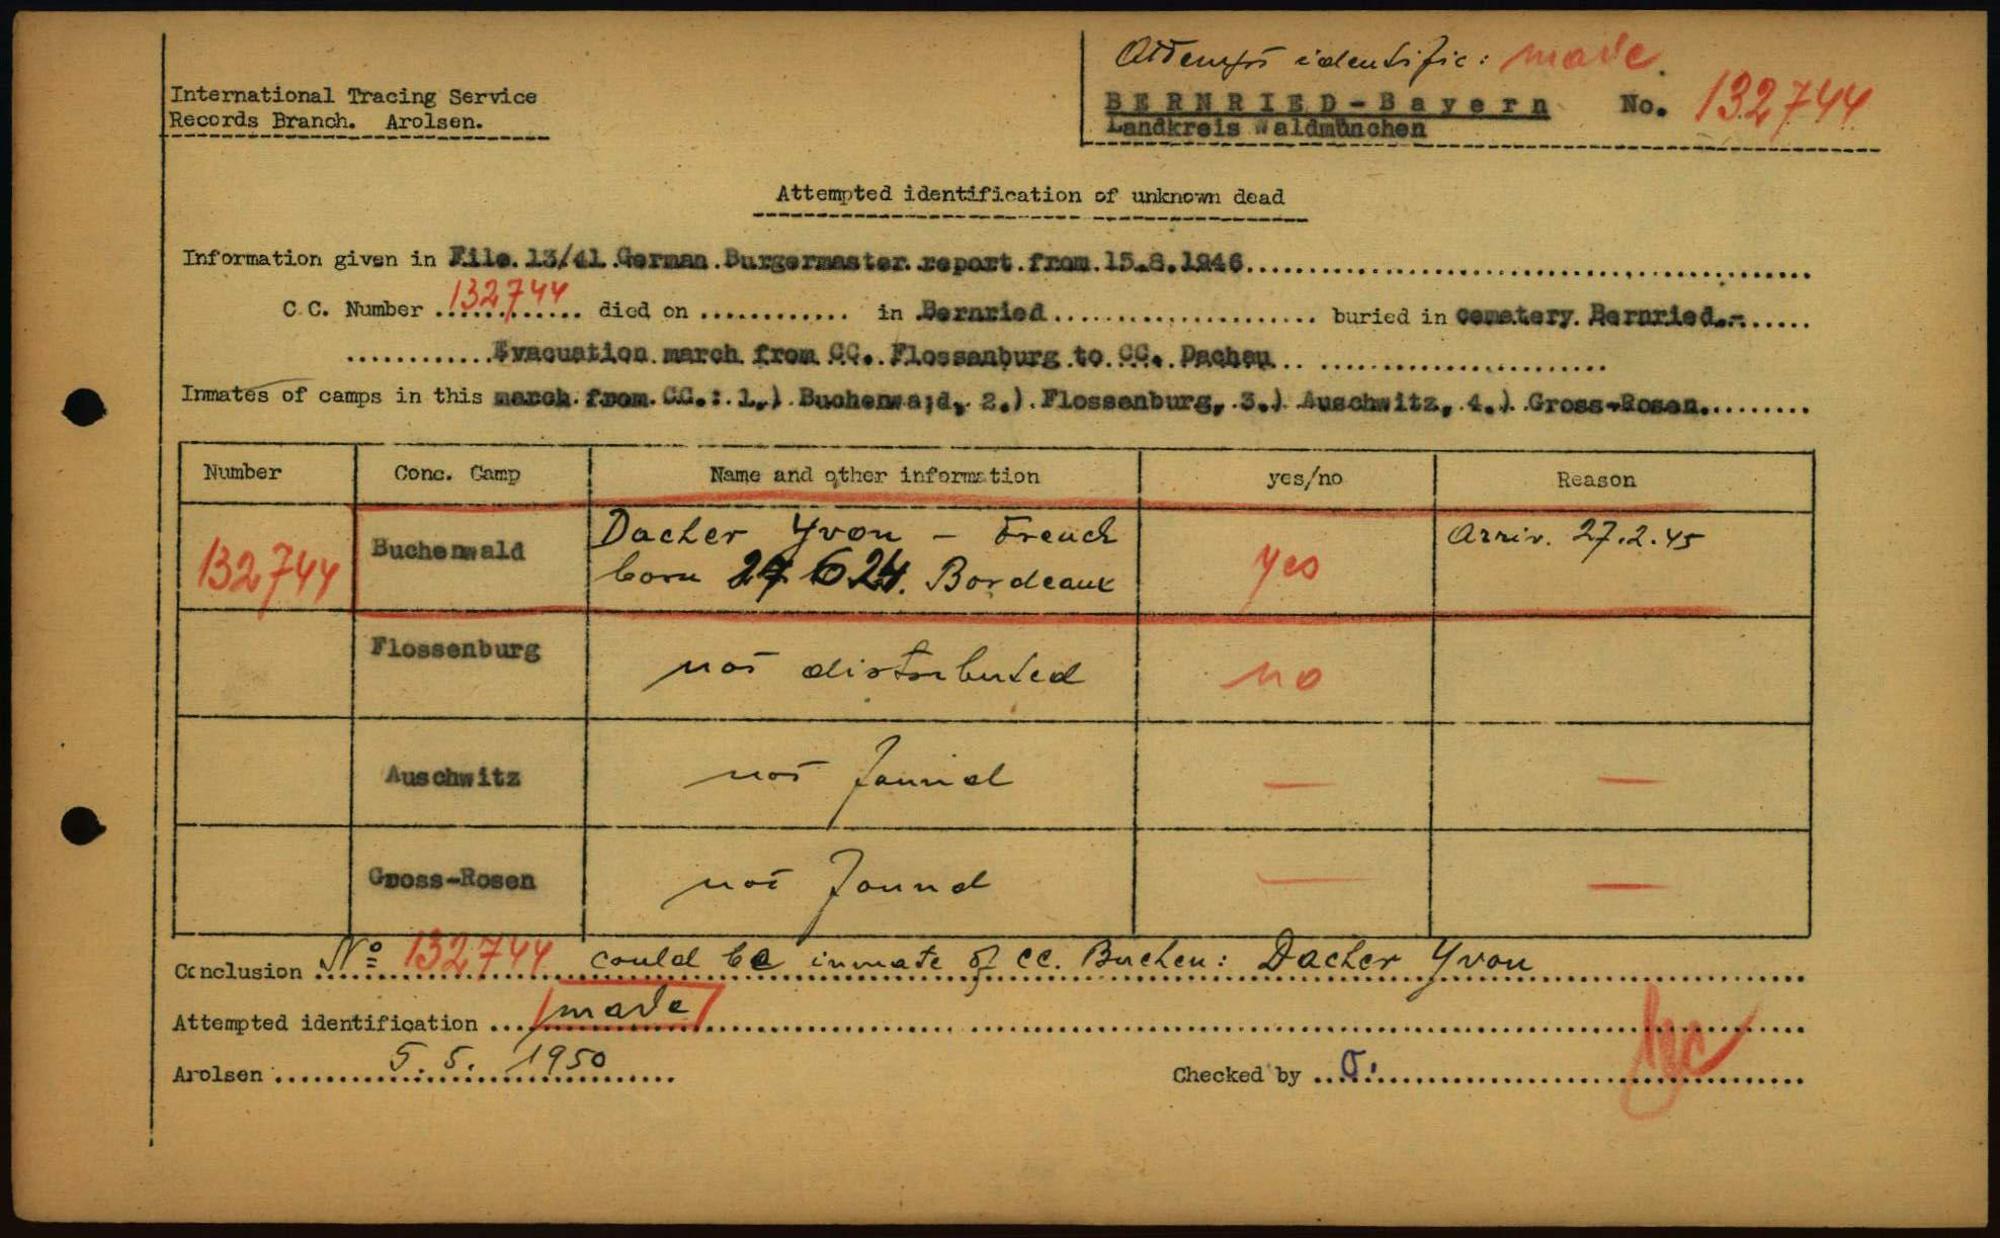 Attempt identific: made.
International Tracing Service
Records Branch. Arolsen.
BERNRIED-Bayern No. 132744
Landkreis Waldmünchen
Attempted identification of unknown dead
Information given in File 13/41 German Burgermaster report from 15.8.1946
C.C. Number 132744 died on ............ in Bernried ........ buried in cemetery Bernried.-
Evacuation march from CC. Flossenburg to CC. Dachau
Inmates of camps in this march from CC.: 1.) Buchenwa;d, 2.) Flossenburg, 3.) Auschwitz, 4.) Gross-Rosen.
Number Conc. Camp Name and other information yes/no Reason
132744 Buchenwald Dacher Yvon - French yes Arriv. 27.2.45
born 27 6 24. Bordeaux
Flossenburg not distributed no
Auschwitz not found — —
Gross-Rosen not found — —
Conclusion Nº 132744 could be inmate of CC. Buchen: Dacher Yvon
Attempted identification made
Arolsen 5. 5. 1950 Checked by